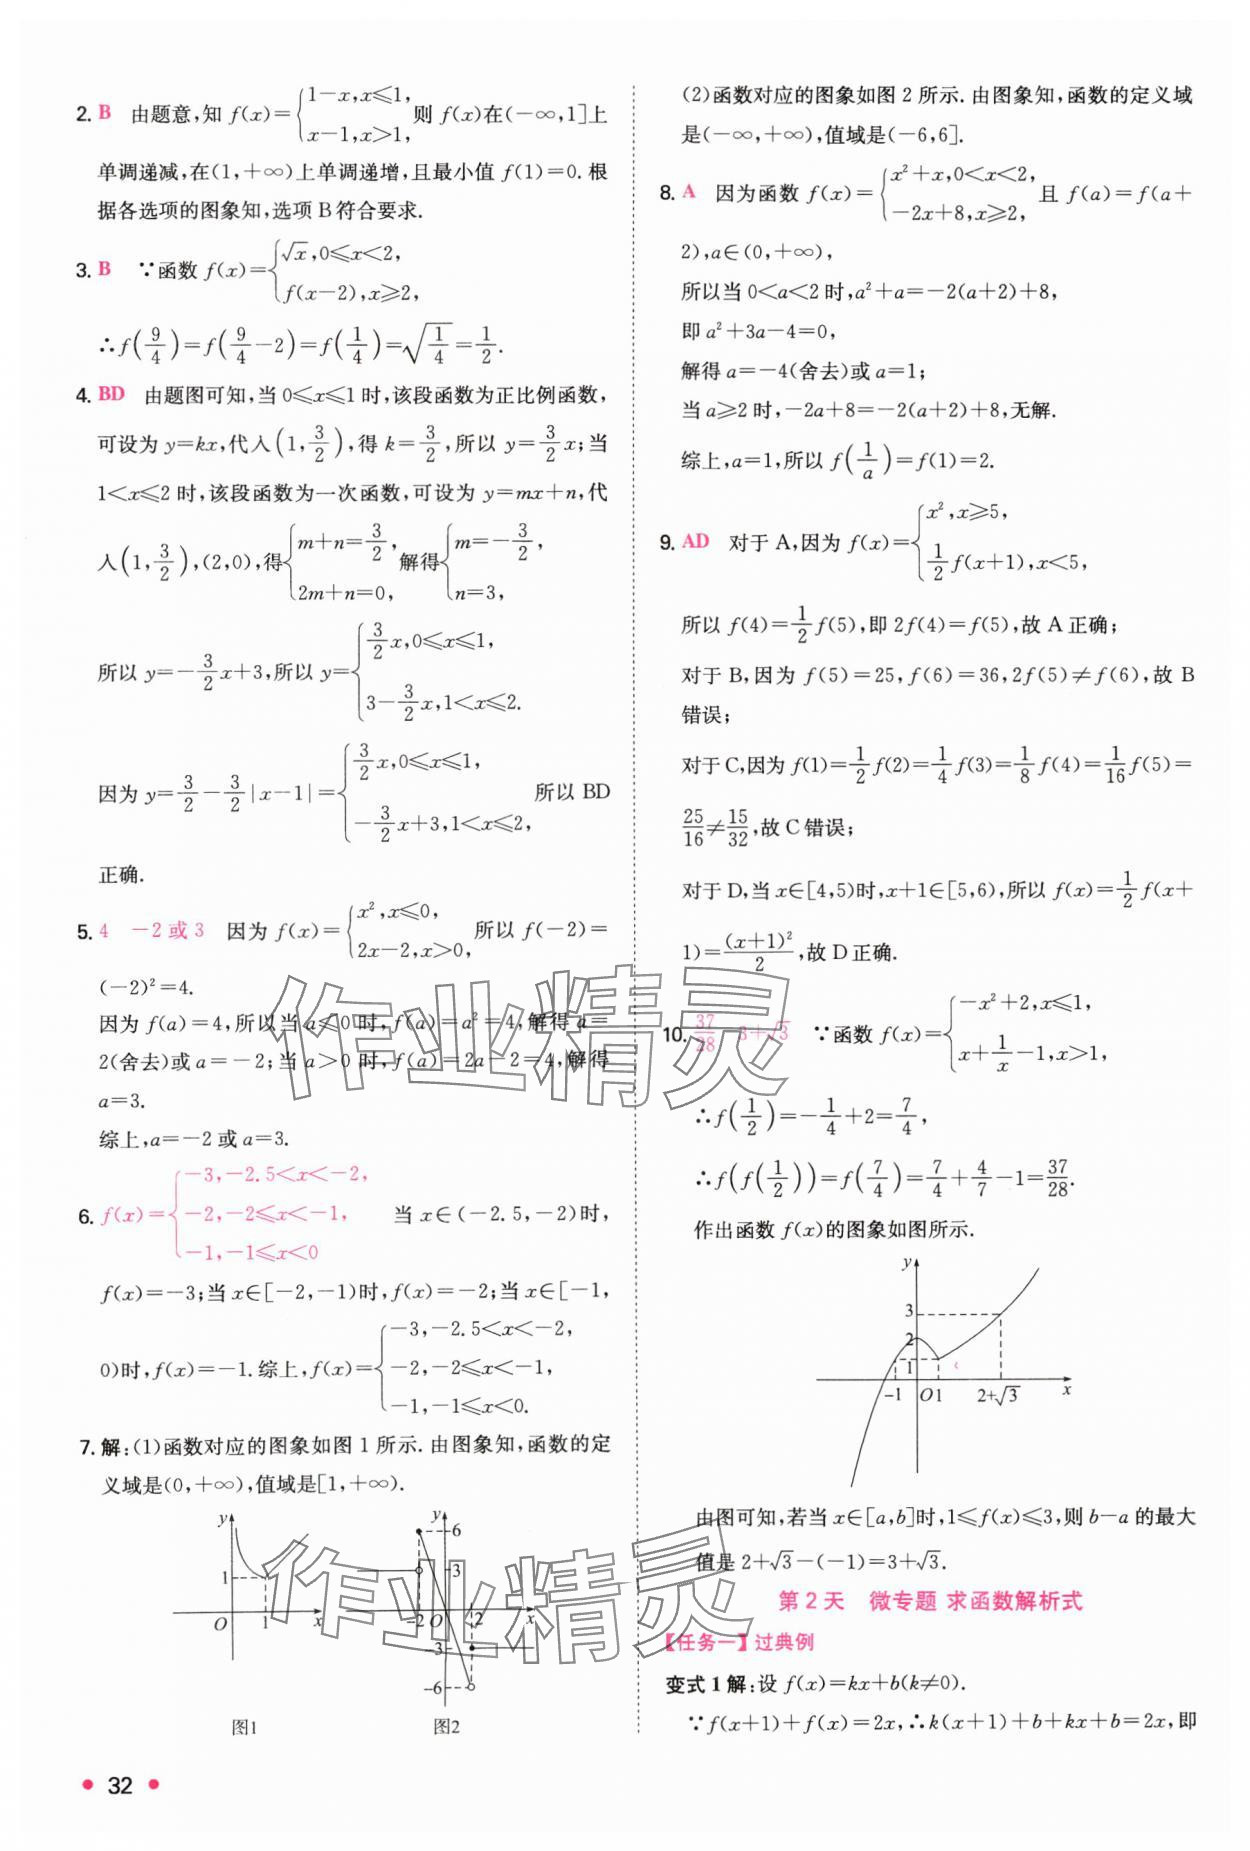 2. B 由题意,知 f(x)={1-x,x⩽1, x-1,x>1, 则 f(x)在(-∞,1]上
单调递减,在(1,+∞)上单调递增,且最小值 f(1)=0. 根
据各选项的图象知,选项 B 符合要求.
3. B ∵函数 f(x)={√x,0⩽x<2, f(x-2),x⩾2,
∴f(9/4)=f(9/4-2)=f(1/4)=√(1/4)=1/2.
4. BD 由题图可知,当 0⩽x⩽1 时,该段函数为正比例函数,
可设为 y=kx,代入(1,3/2),得 k=3/2,所以 y=3/2x;当
1<x⩽2 时,该段函数为一次函数,可设为 y=mx+n,代
入(1,3/2),(2,0),得{m+n=3/2, 2m+n=0, 解得{m=-3/2, n=3,
所以 y=-3/2x+3,所以 y={3/2x,0⩽x⩽1, 3-3/2x,1<x⩽2.
因为 y=3/2-3/2|x-1|={3/2x,0⩽x⩽1, -3/2x+3,1<x⩽2, 所以 BD
正确.
5. 4 -2或3 因为 f(x)={x²,x⩽0, 2x-2,x>0, 所以 f(-2)=
(-2)²=4.
因为 f(a)=4,所以当 a⩽0 时,f(a)=a²=4,解得 a=
2(舍去)或 a=-2;当 a>0 时,f(a)=2a-2=4,解得
a=3.
综上,a=-2 或 a=3.
6. f(x)={-3,-2.5<x<-2, -2,-2⩽x<-1, -1,-1⩽x<0 当 x∈(-2.5,-2)时,
f(x)=-3;当 x∈[-2,-1)时,f(x)=-2;当 x∈[-1,
0)时,f(x)=-1.综上,f(x)={-3,-2.5<x<-2, -2,-2⩽x<-1, -1,-1⩽x<0.
7. 解:(1)函数对应的图象如图 1 所示. 由图象知,函数的定
义域是(0,+∞),值域是[1,+∞).
y
1
O 1 x
图1
y
6
3
-2 O 2 x
-3
-6
图2
32
(2)函数对应的图象如图 2 所示. 由图象知,函数的定义域
是(-∞,+∞),值域是(-6,6].
8. A 因为函数 f(x)={x²+x,0<x<2, -2x+8,x⩾2, 且 f(a)=f(a+
2),a∈(0,+∞),
所以当 0<a<2 时,a²+a=-2(a+2)+8,
即 a²+3a-4=0,
解得 a=-4(舍去)或 a=1;
当 a⩾2 时,-2a+8=-2(a+2)+8,无解.
综上,a=1,所以 f(1/a)=f(1)=2.
9. AD 对于 A,因为 f(x)={x²,x⩾5, 1/2f(x+1),x<5,
所以 f(4)=1/2f(5),即 2f(4)=f(5),故 A 正确;
对于 B,因为 f(5)=25,f(6)=36,2f(5)≠f(6),故 B
错误;
对于 C,因为 f(1)=1/2f(2)=1/4f(3)=1/8f(4)=1/16f(5)=
25/16≠15/32,故 C 错误;
对于 D,当 x∈[4,5)时,x+1∈[5,6),所以 f(x)=1/2f(x+
1)=(x+1)²/2,故 D 正确.
10. 37/28 3+√3 ∵函数 f(x)={-x²+2,x⩽1, x+1/x-1,x>1,
∴f(1/2)=-1/4+2=7/4,
∴f(f(1/2))=f(7/4)=7/4+4/7-1=37/28.
作出函数 f(x)的图象如图所示.
y
3
2
1
-1 O 1 2+√3 x
由图可知,若当 x∈[a,b]时,1⩽f(x)⩽3,则 b-a 的最大
值是 2+√3-(-1)=3+√3.
第 2 天 微专题 求函数解析式
【任务一】过典例
变式 1 解:设 f(x)=kx+b(k≠0).
∵f(x+1)+f(x)=2x,∴k(x+1)+b+kx+b=2x,即
作业精灵
作业精灵